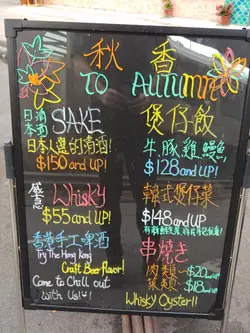 秋 香
TO AUTUMN
日本
清酒 SAKE
日本人選的清酒!
$150 and UP!
Whisky
$55 and UP!
香港手工啤酒
Try The Hong Kong
Craft Beer Flavor!
Come to Chill out
With Us!
煲仔飯
牛,豚,雞,鰻魚
$128 and UP!
韓式煲仔菜
$148 and UP!
串燒き
肉類~$20
菜類~$18
Whisky Oyster!!